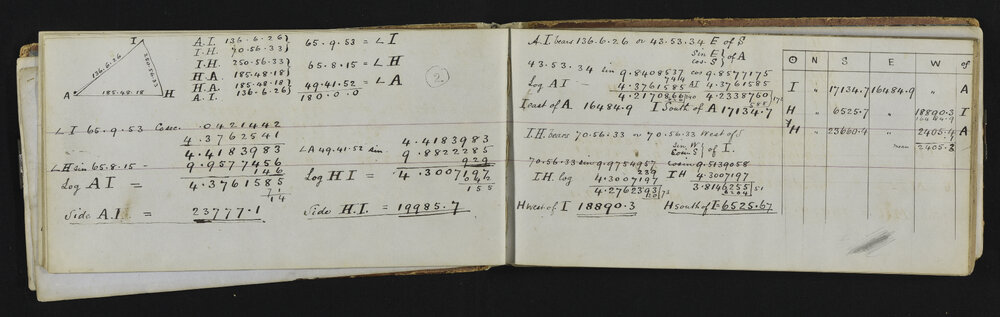 I
136.6.26
250.56.33
A 185.48.18 H
A.I. 136.6.26}
I.H. 70.56.33}
I.H. 250.56.33}
H.A. 185.48.18}
H.A. 185.48.18}
A.I. 136.6.26}
65.9.53 = ∠I
65.8.15 = ∠H
49.41.52 = ∠A
180.0.0
2
∠I 65.9.53 Cosec. .0421442
4.3762541
4.4183983
∠H sin 65.8.15 - 9.9577456
146
Log AI = 4.3761585
71
14
Side A.I. = 23777.1
4.4183983
∠A 49.41.52 sin 9.8822285
929
Log HI = 4.3007197
042
155
Side H.I. = 19985.7
A.I bears 136.6.26 or 43.53.34 E of S
sin E} of A
cos. S}
43.53.34 sin 9.8408537 cos 9.8577175
Log AI - 4.3761585 AI 4.3761585
4.2170866 4.2338760
I east of A 16484.9 I South of A 17134.7
I.H. bears 70.56.33 or 70.56.33 West of S
sin W} of I.
Cos. S}
70.56.33 sin 9.9754957 cosin 9.5139058
239
I.H. log 4.3007197 IH 4.3007197
4.2762393 3.8146255
H West of I 18890.3 H South of I = 6525.67
N S E W of
I " 17134.7 16484.9 " A
H " 6525.7 18890.3 I
16484.9
H " 23660.4 " 2405.4 A
mean 2405.3